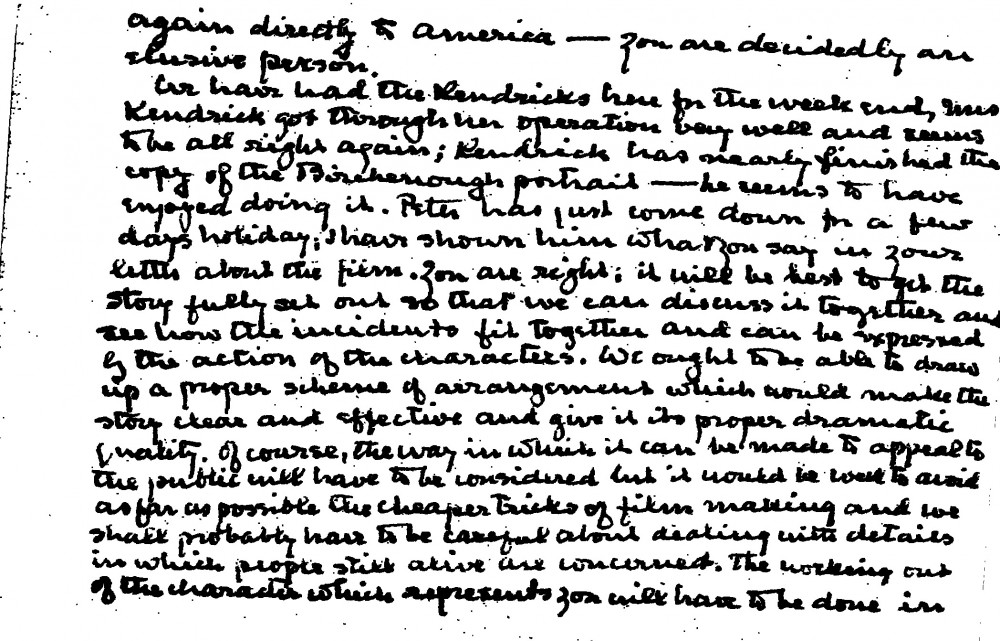 again directly to America — you are decidedly an
elusive person.
We have had the Kendricks here for the week end, Mrs
Kendrick got through her operation very well and seems
to be all right again; Kendrick has nearly finished the
copy of the Birchenough portrait — he seems to have
enjoyed doing it. Peter has just come down for a few
days holiday; I have shown him what you say in your
letter about the film. You are right; it will be best to get the
story fully set out so that we can discuss it together and
see how the incidents fit together and can be expressed
by the action of the characters. We ought to be able to draw
up a proper scheme of arrangement which would make the
story clear and effective and give it its proper dramatic
quality. Of course, the way in which it can be made to appeal to
the public will have to be considered but it would be well to avoid
as far as possible the cheaper tricks of film making and we
shall probably have to be careful about dealing with details
in which people still alive are concerned. The working out
of the character which represents you will have to be done in